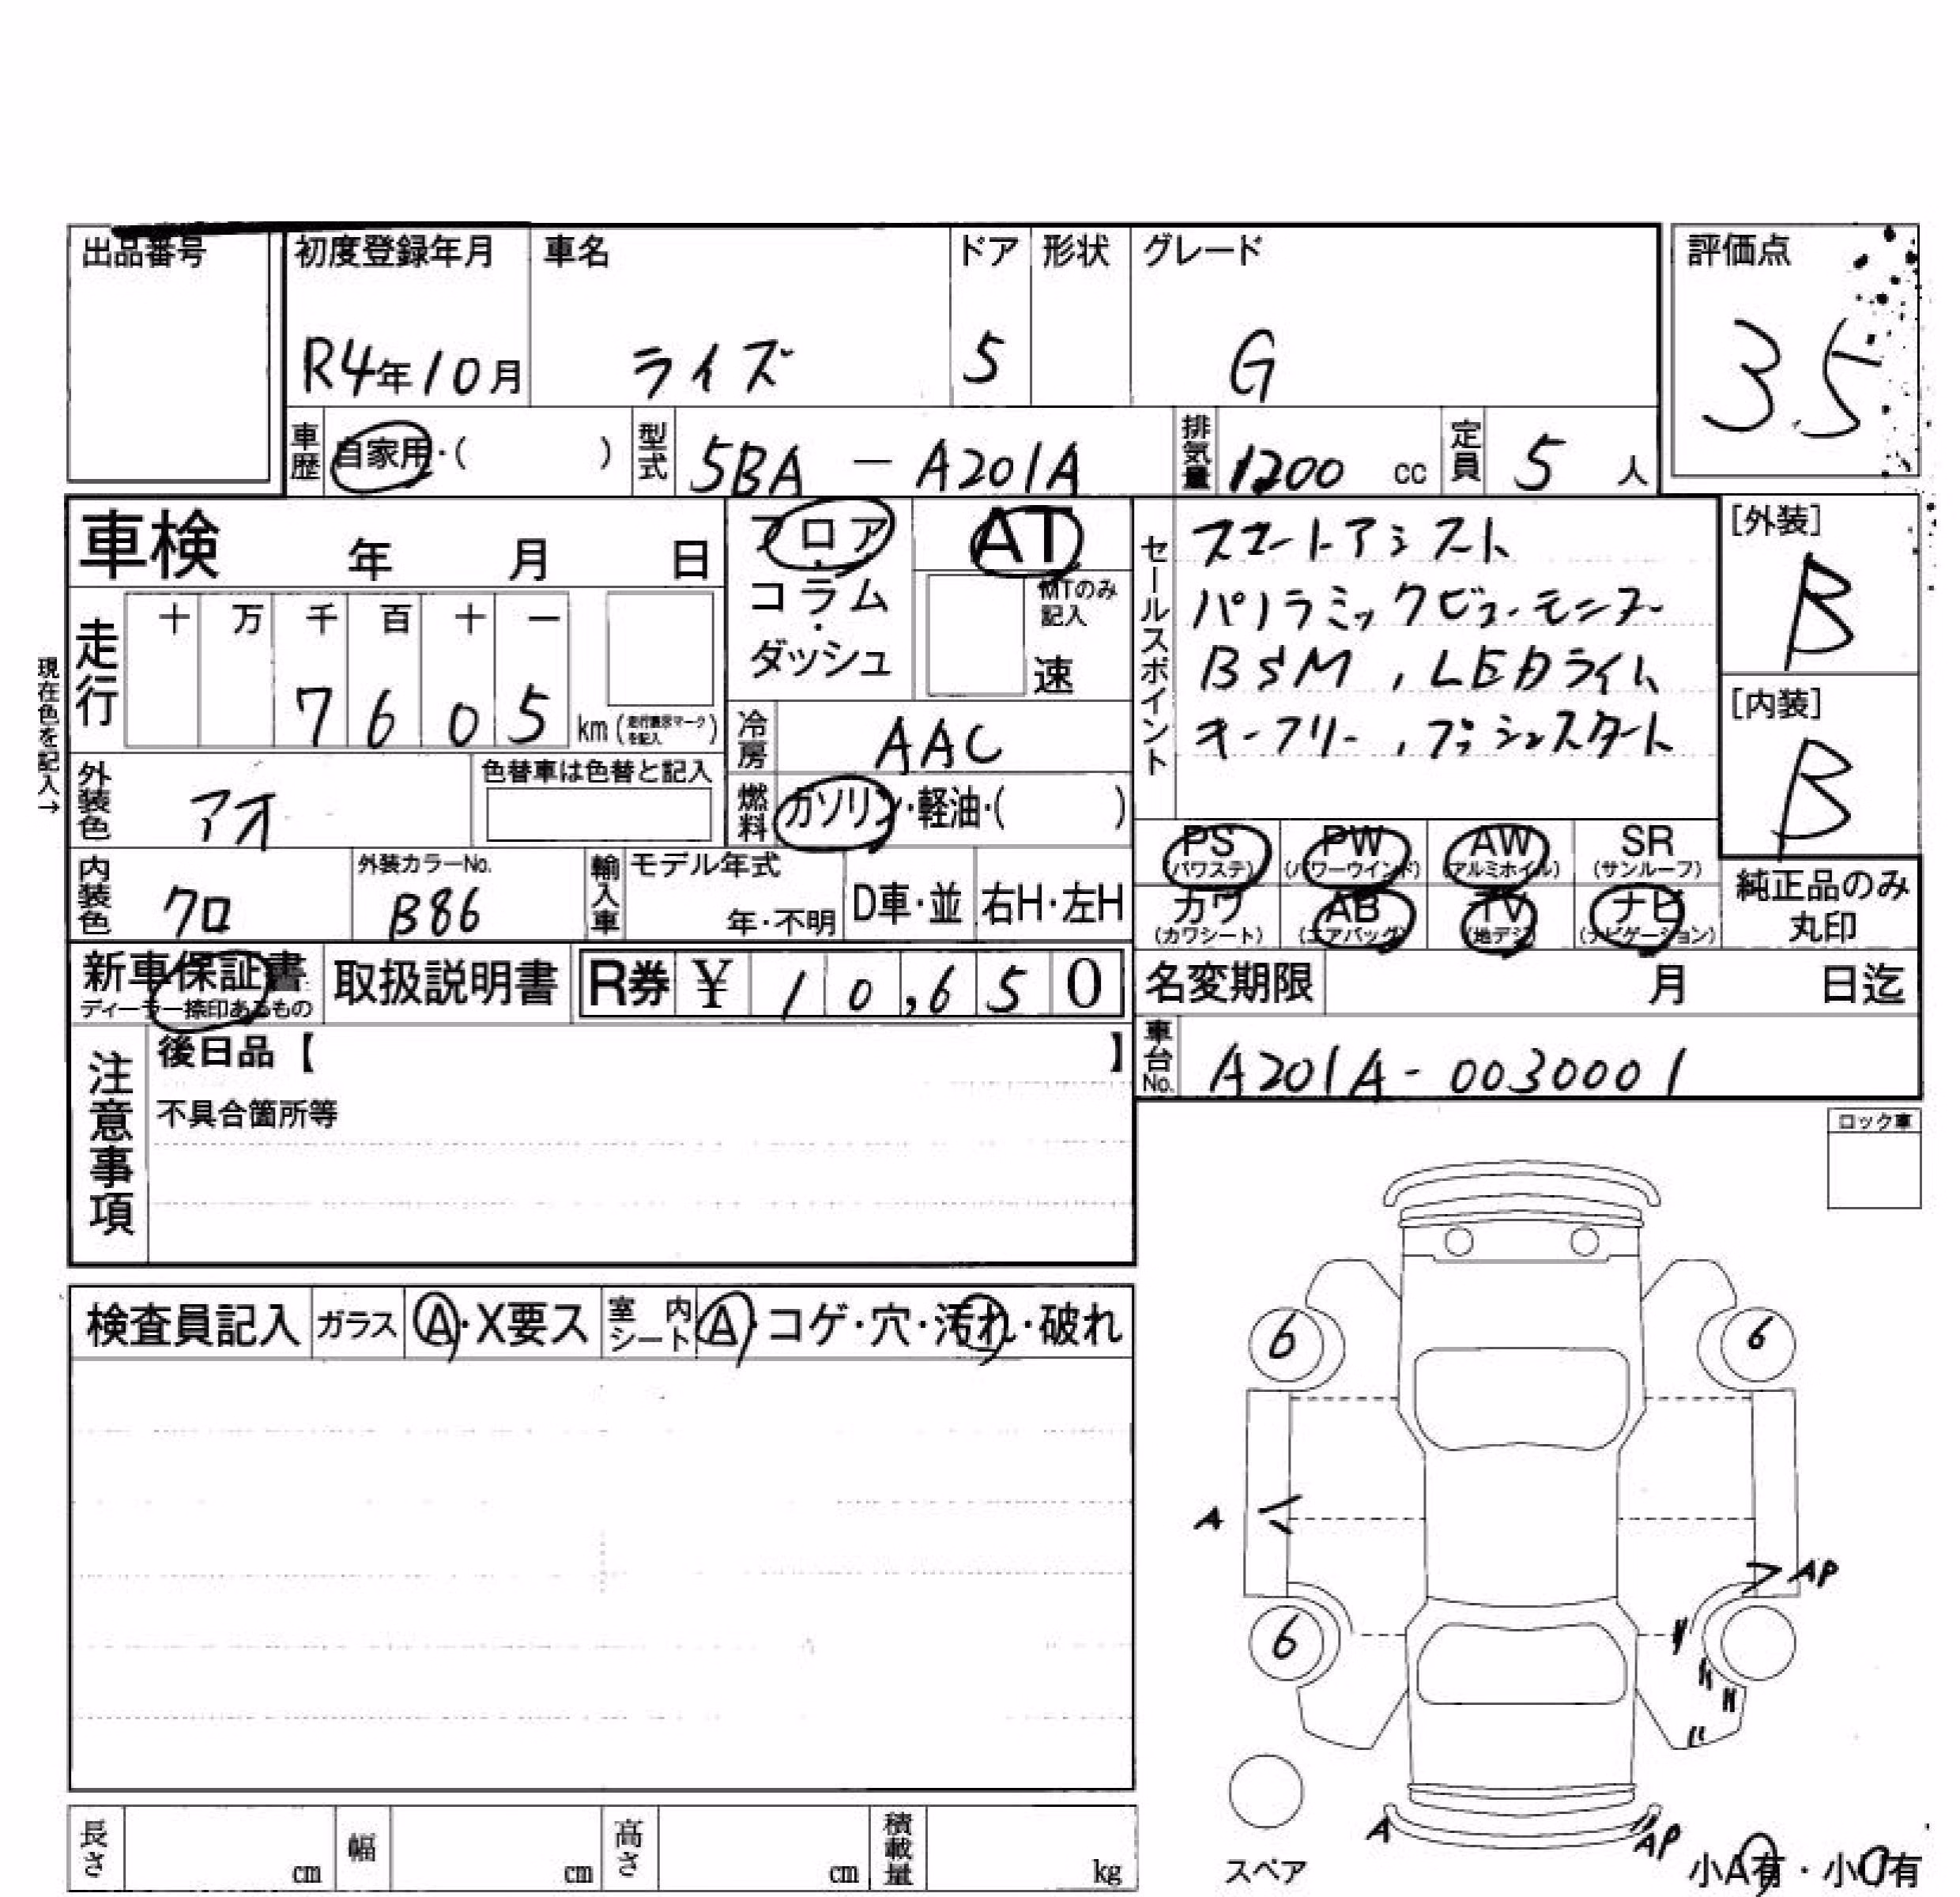 出品番号
初度登録年月 車名 ドア 形状 グレード 評価点
R4年10月 ライズ 5 G 3.5
車歴 自家用・( ) 型式 5BA － A201A 排気量 1200 cc 定員 5 人
車検 年 月 日
フロア・コラム・ダッシュ
AT
MTのみ記入
速
セールスポイント
スマートアシスト
パノラミックビューモニター
BSM , LEDライム
キーフリー , プッシュスタート
[外装]
B
[内装]
B
現在色を記入→
走行 十 万 千 百 十 一
7 6 0 5 km (走行表示マークを記入)
冷房 AAC
外装色 アオ 色替車は色替と記入
燃料 ガソリン・軽油・( )
PS (パワステ) PW (パワーウインド) AW (アルミホイル) SR (サンルーフ)
カワ (カワシート) AB (エアバッグ) TV (地デジ) ナビ (ナビゲーション)
純正品のみ丸印
内装色 クロ 外装カラーNo. B86 輸入車 モデル年式 年・不明 D車・並 右H・左H
新車保証書 ディーラー捺印あるもの 取扱説明書 R券 ¥ 1 0,6 5 0
名変期限 月 日迄
車台No. A201A-0030001
注意事項
後日品【 】
不具合箇所等
ロック車
検査員記入 ガラス A・X要ス 室内シート A・コゲ・穴・汚れ・破れ
6 6
A
AP
6
A AP
スペア
小A有・小U有
長さ cm 幅 cm 高さ cm 積載量 kg